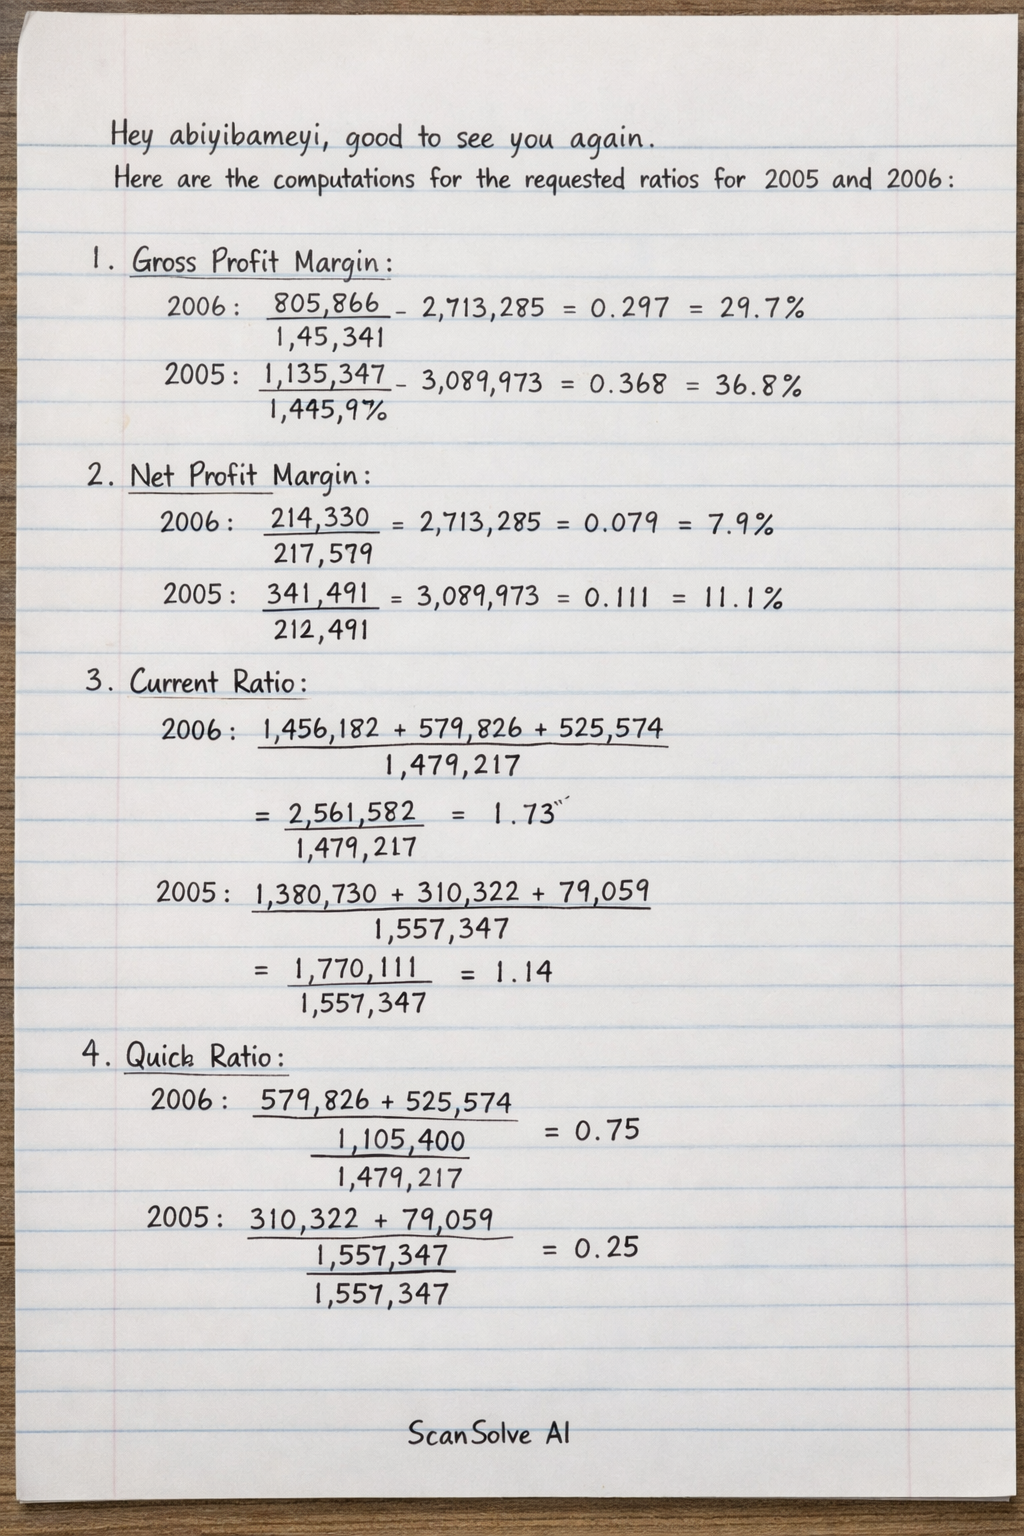 Hey abiyibameyi, good to see you again.
Here are the computations for the requested ratios for 2005 and 2006:
1. Gross Profit Margin:
2006: 805,866 - 2,713,285 = 0.297 = 29.7%
1,45,341
2005: 1,135,347 - 3,089,973 = 0.368 = 36.8%
1,445,9%
2. Net Profit Margin:
2006: 214,330 = 2,713,285 = 0.079 = 7.9%
217,579
2005: 341,491 = 3,089,973 = 0.111 = 11.1%
212,491
3. Current Ratio:
2006: 1,456,182 + 579,826 + 525,574
1,479,217
= 2,561,582 = 1.73
1,479,217
2005: 1,380,730 + 310,322 + 79,059
1,557,347
= 1,770,111 = 1.14
1,557,347
4. Quick Ratio:
2006: 579,826 + 525,574
1,105,400 = 0.75
1,479,217
2005: 310,322 + 79,059
1,557,347 = 0.25
1,557,347
ScanSolve AI